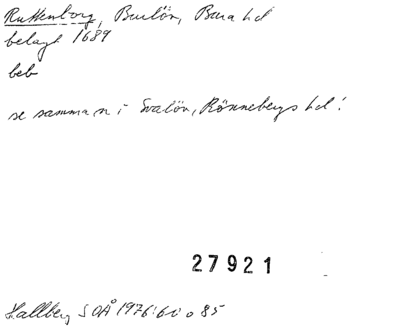 Ruttenborg, Burlöv, Bara hd
belagt 1689
beb
se samma n i Svalöv, Rönnebergs hd!
27921
Hallberg SOÅ 1976: 60 o 85